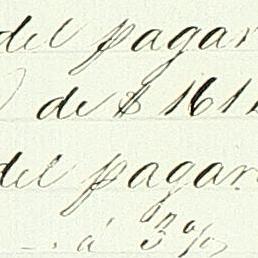 del pagar
de $ 161
del pagar
á 3 %